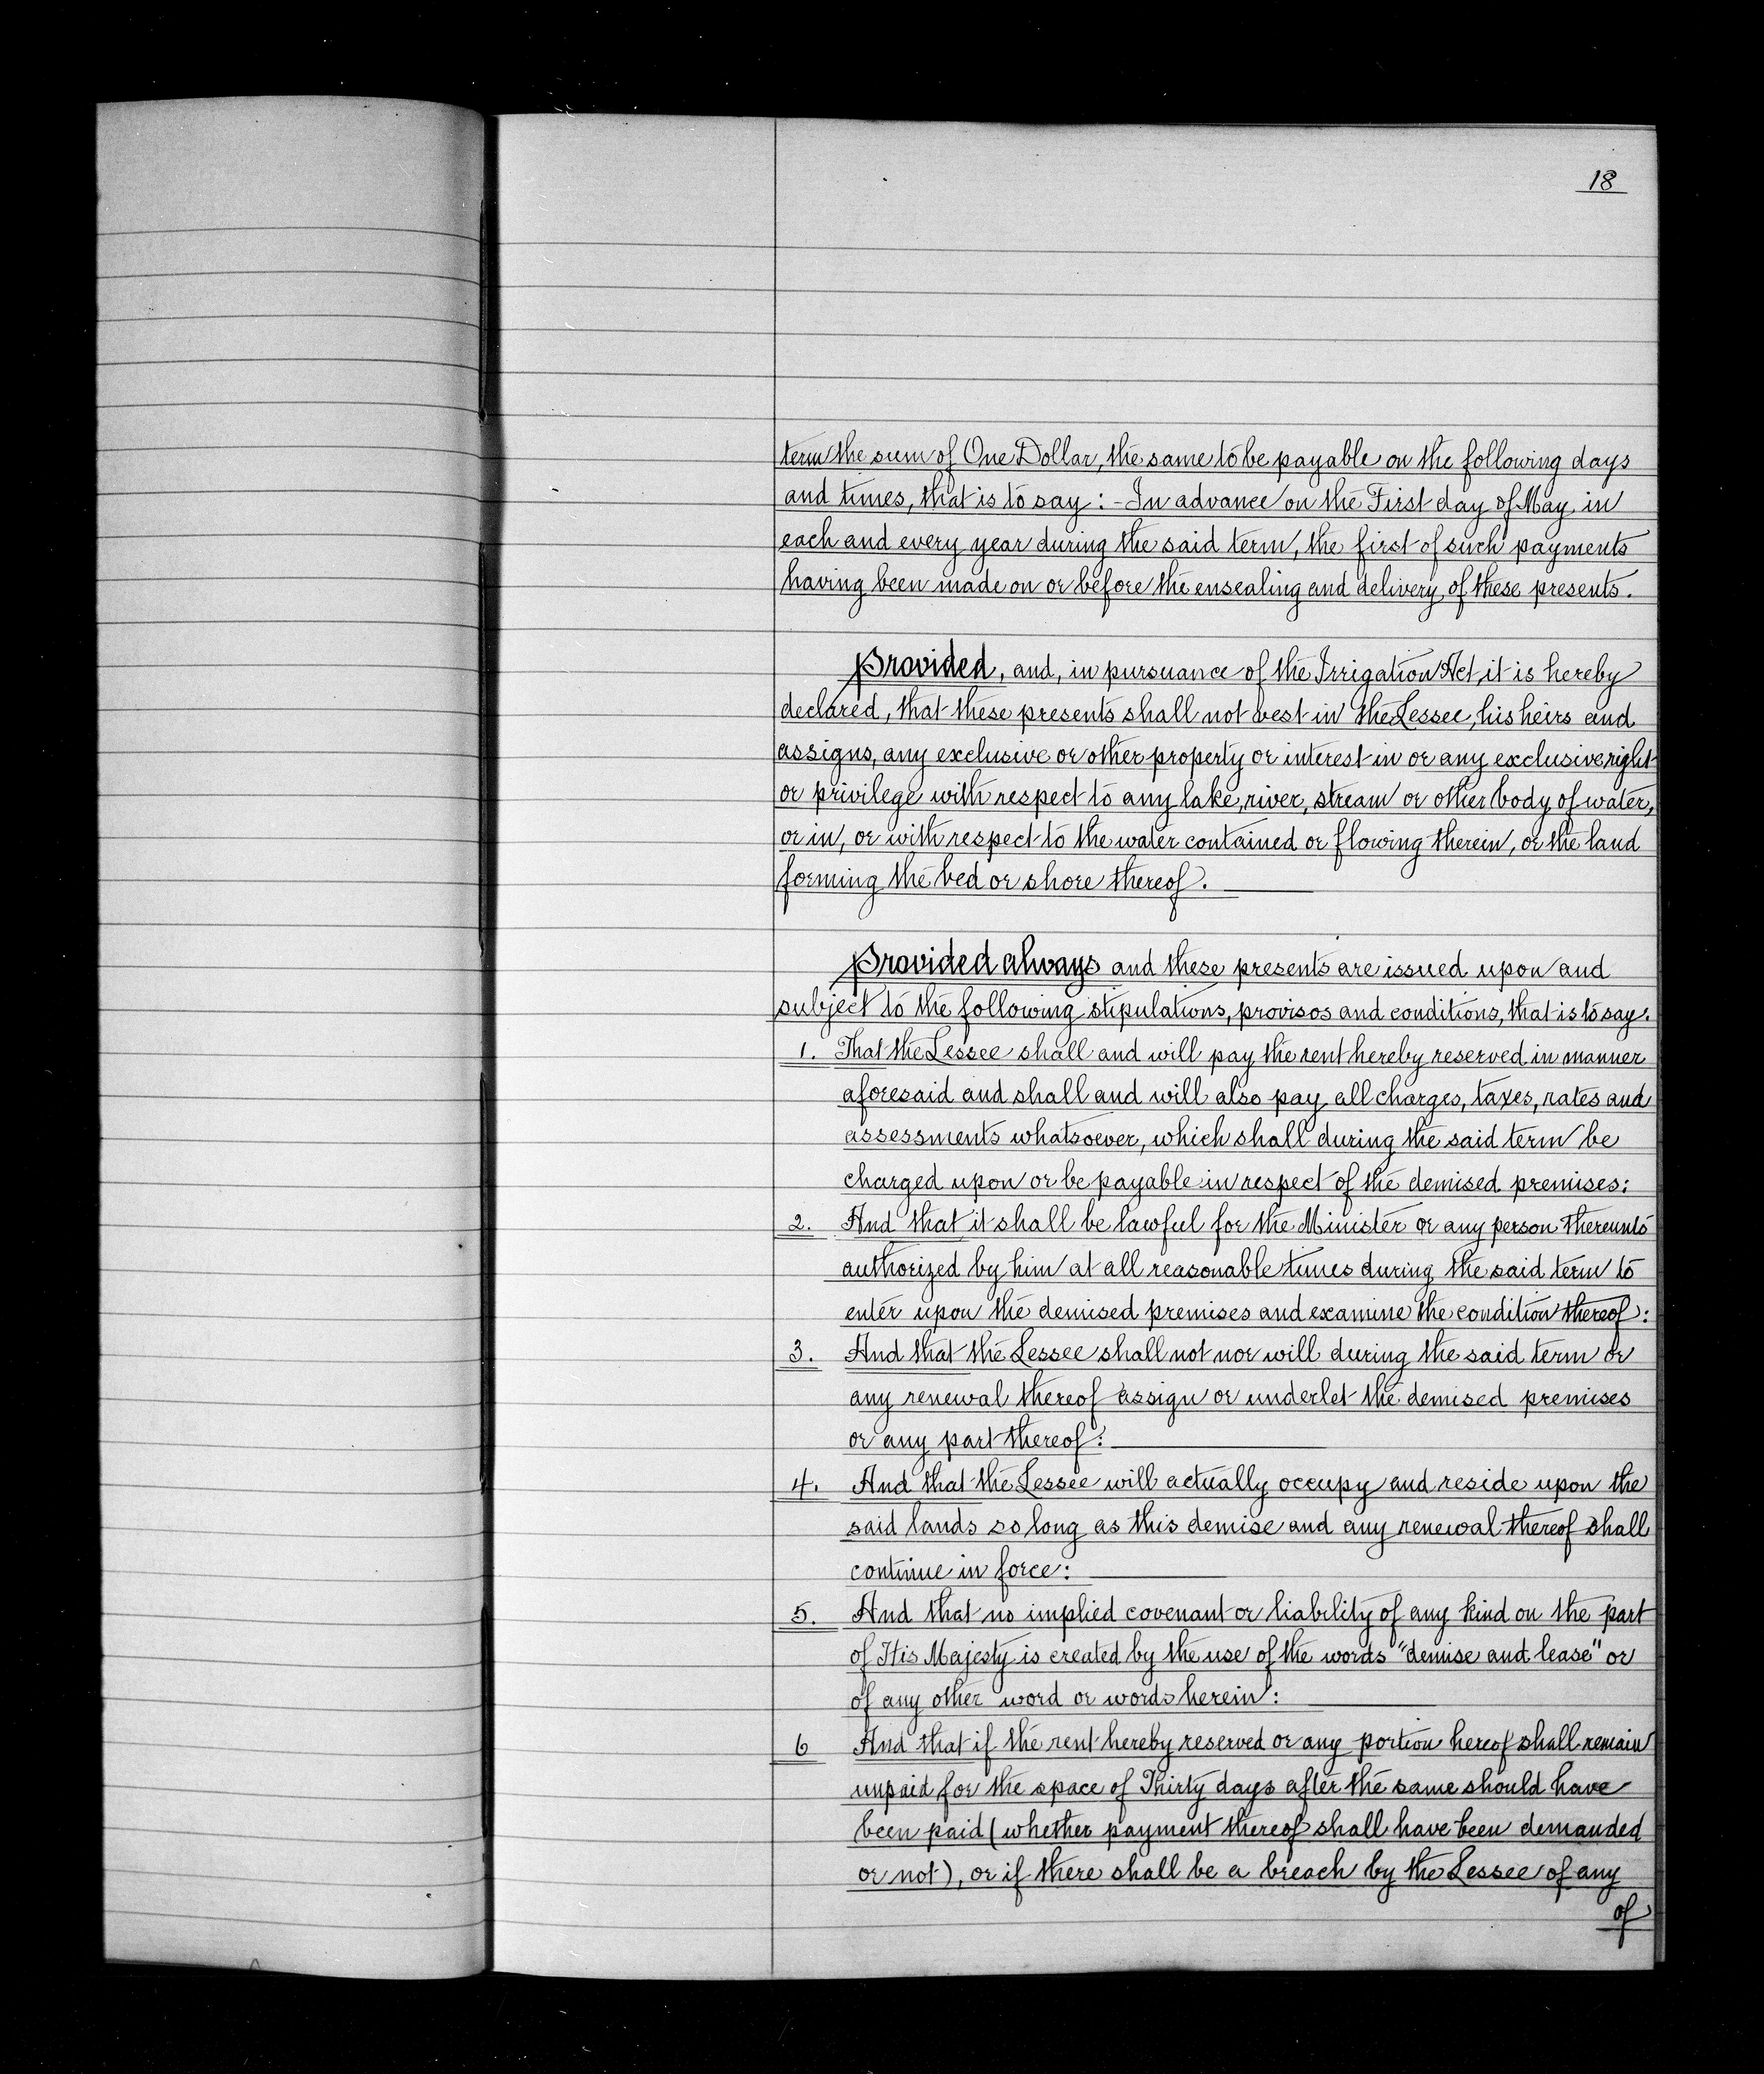 18
term the sum of One Dollar, the same to be payable on the following days
and times, that is to say: - In advance on the First day of May in
each and every year during the said term, the first of such payments
having been made on or before the ensealing and delivery of these presents.
Provided, and, in pursuance of the Irrigation Act, it is hereby
declared, that these presents shall not vest in the Lessee, his heirs and
assigns, any exclusive or other property or interest in or any exclusive right
or privilege with respect to any lake, river, stream or other body of water,
or in, or with respect to the water contained or flowing therein, or the land
forming the bed or shore thereof.
Provided always and these presents are issued upon and
subject to the following stipulations, provisos and conditions, that is to say:
1. That the Lessee shall and will pay the rent hereby reserved in manner
aforesaid and shall and will also pay all charges, taxes, rates and
assessments whatsoever, which shall during the said term be
charged upon or be payable in respect of the demised premises:
2. And that it shall be lawful for the Minister or any person thereunto
authorized by him at all reasonable times during the said term to
enter upon the demised premises and examine the condition thereof:
3. And that the Lessee shall not nor will during the said term or
any renewal thereof assign or underlet the demised premises
or any part thereof:
4. And that the Lessee will actually occupy and reside upon the
said lands so long as this demise and any renewal thereof shall
continue in force:
5. And that no implied covenant or liability of any kind on the part
of His Majesty is created by the use of the words "demise and lease" or
of any other word or words herein:
6 And that if the rent hereby reserved or any portion hereof shall remain
unpaid for the space of Thirty days after the same should have
been paid (whether payment thereof shall have been demanded
or not), or if there shall be a breach by the Lessee of any
of